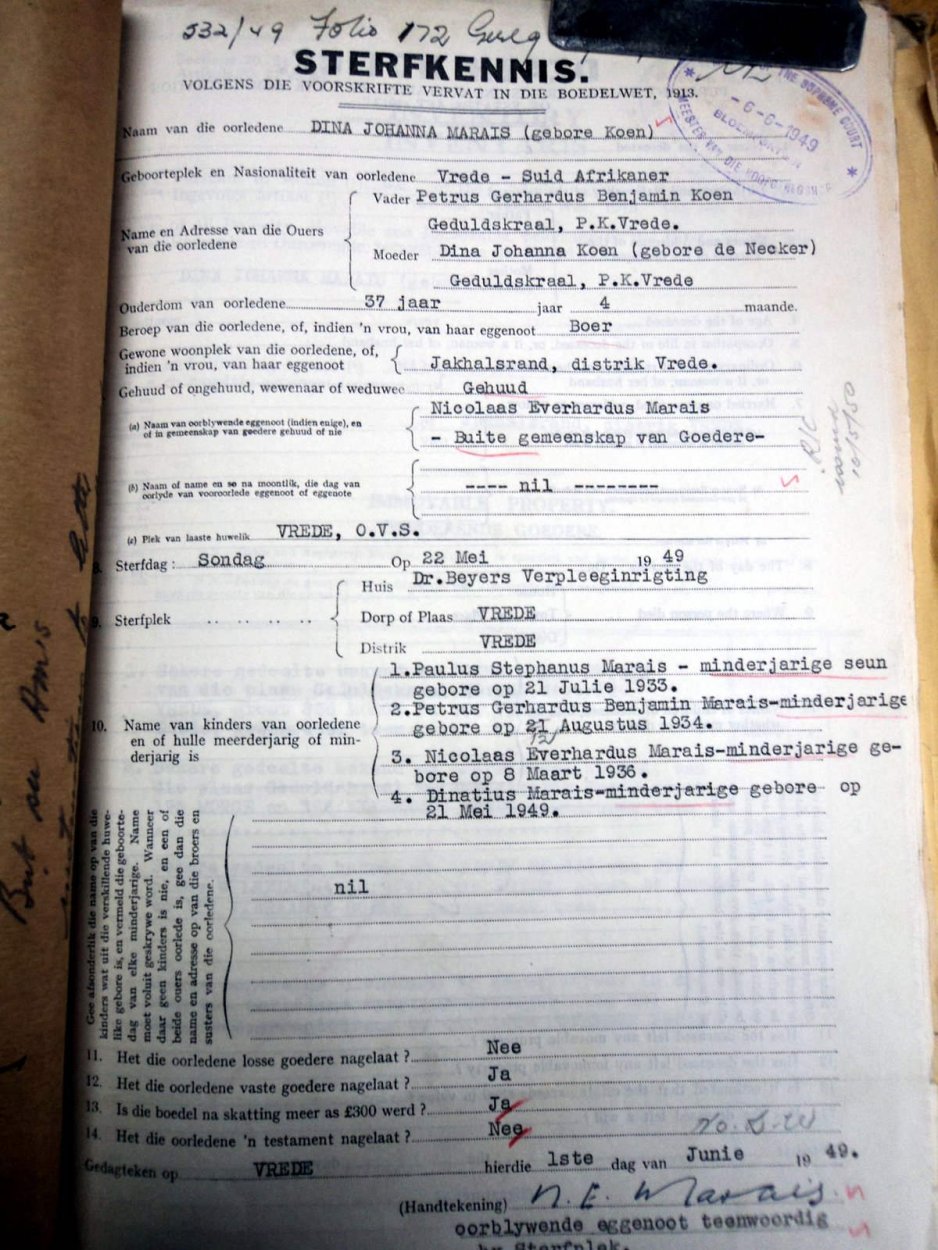 532/49 Folio 172
STERFKENNIS.
VOLGENS DIE VOORSKRIFTE VERVAT IN DIE BOEDELWET, 1913.
THE SUPREME COURT
- 6 - 6 - 1949
BLOEMFONTEIN
MEESTER VAN DIE HOOGGEREGSHOF
Naam van die oorledene DINA JOHANNA MARAIS (gebore Koen)
Geboorteplek en Nasionaliteit van oorledene Vrede - Suid Afrikaner
Name en Adresse van die Ouers van die oorledene
Vader Petrus Gerhardus Benjamin Koen
Geduldskraal, P.K.Vrede.
Moeder Dina Johanna Koen (gebore de Necker)
Geduldskraal, P.K.Vrede
Ouderdom van oorledene 37 jaar jaar 4 maande.
Beroep van die oorledene, of, indien 'n vrou, van haar eggenoot Boer
Gewone woonplek van die oorledene, of,
indien 'n vrou, van haar eggenoot Jakhalsrand, distrik Vrede.
Gehuud of ongehuud, wewenaar of weduwee Gehuud
(a) Naam van oorblywende eggenoot (indien enige), en
of in gemeenskap van goedere gehuud of nie
Nicolaas Everhardus Marais
- Buite gemeenskap van Goedere-
(b) Naam of name en so na moontlik, die dag van
oorlyde van vooroorlede eggenoot of eggenote
---- nil --------
(c) Plek van laaste huwelik VREDE, O.V.S.
8. Sterfdag: Sondag Op 22 Mei 19 49
9. Sterfplek
Huis Dr.Beyers Verpleeginrigting
Dorp of Plaas VREDE
Distrik VREDE
10. Name van kinders van oorledene
en of hulle meerderjarig of min-
derjarig is
1.Paulus Stephanus Marais - minderjarige seun
gebore op 21 Julie 1933.
2.Petrus Gerhardus Benjamin Marais-minderjarige
gebore op 21 Augustus 1934.
3. Nicolaas Everhardus Marais-minderjarige ge-
bore op 8 Maart 1936.
4. Dinatius Marais-minderjarige gebore op
21 Mei 1949.
Gee afsonderlik die name op van die
kinders wat uit die verskillende huwe-
like gebore is, en vermeld die geboorte-
dag van elke minderjarige. Name
moet voluit geskrywe word. Wanneer
daar geen kinders is nie, en een of
beide ouers oorlede is, gee dan die
name en adresse op van die broers en
susters van die oorledene.
nil
11. Het die oorledene losse goedere nagelaat ? Nee
12. Het die oorledene vaste goedere nagelaat ? Ja
13. Is die boedel na skatting meer as £300 werd ? Ja
14. Het die oorledene 'n testament nagelaat ? Nee
Gedagteken op VREDE hierdie 1ste dag van Junie 19 49.
(Handtekening) N. E. Marais
oorblywende eggenoot teenwoordig
by Sterfplek.